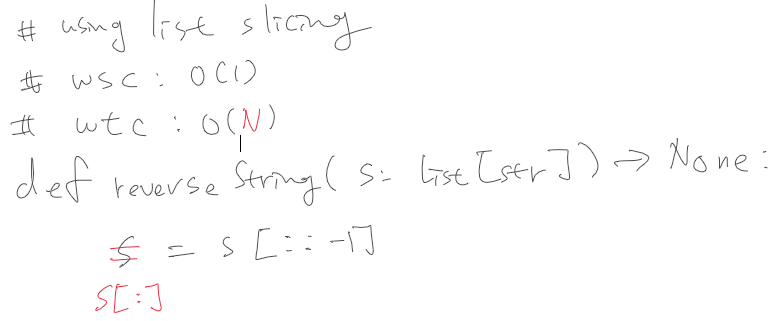 # using list slicing
# wsc : O(1)
# wtc : O(N)
def reverseString( s: List[str]) -> None:
s = s[::-1]
s[:]